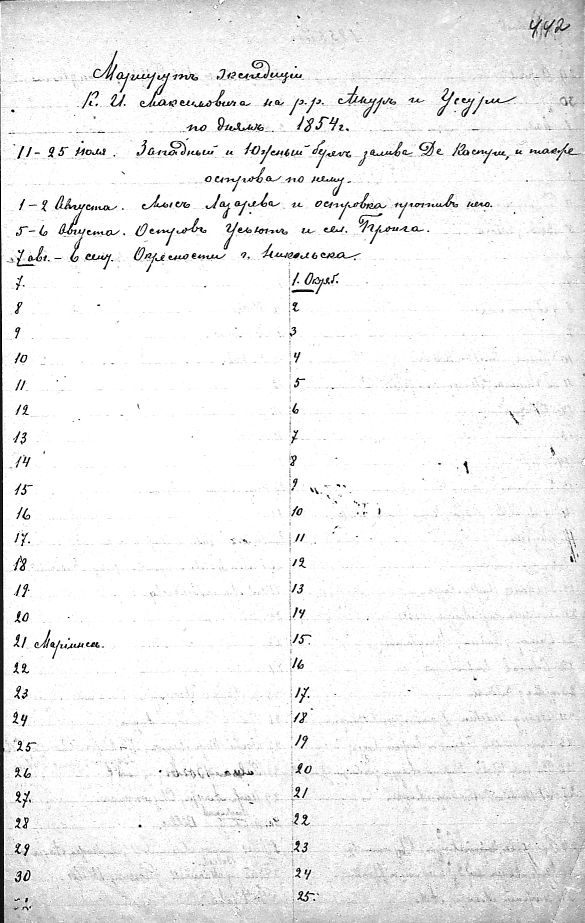 442
Маршрутъ экспедиціи
К. И. Максимовича на р.р. Амуръ и Уссури
по днямъ 1854 г.
11-25 Июля. Западный и Южный берегъ залива Де Кастри, и также
острова по нему.
1-2 Августа. Мысъ Лазарева и островка противъ него.
5-6 Августа. Островъ Усьютъ и сел. Пронга.
7 авг. - 6 сент. Окресности г. Никольска.
7. 1. Октяб.
8 2
9 3
10 4
11 5
12 6
13 7
14 8
15 9
16 10
17. 11
18 12
19 13
20 14
21 Маріинскъ. 15.
22 16
23 17.
24 18
25 19
26 20
27. 21
28 22
29 23
30 24
25.